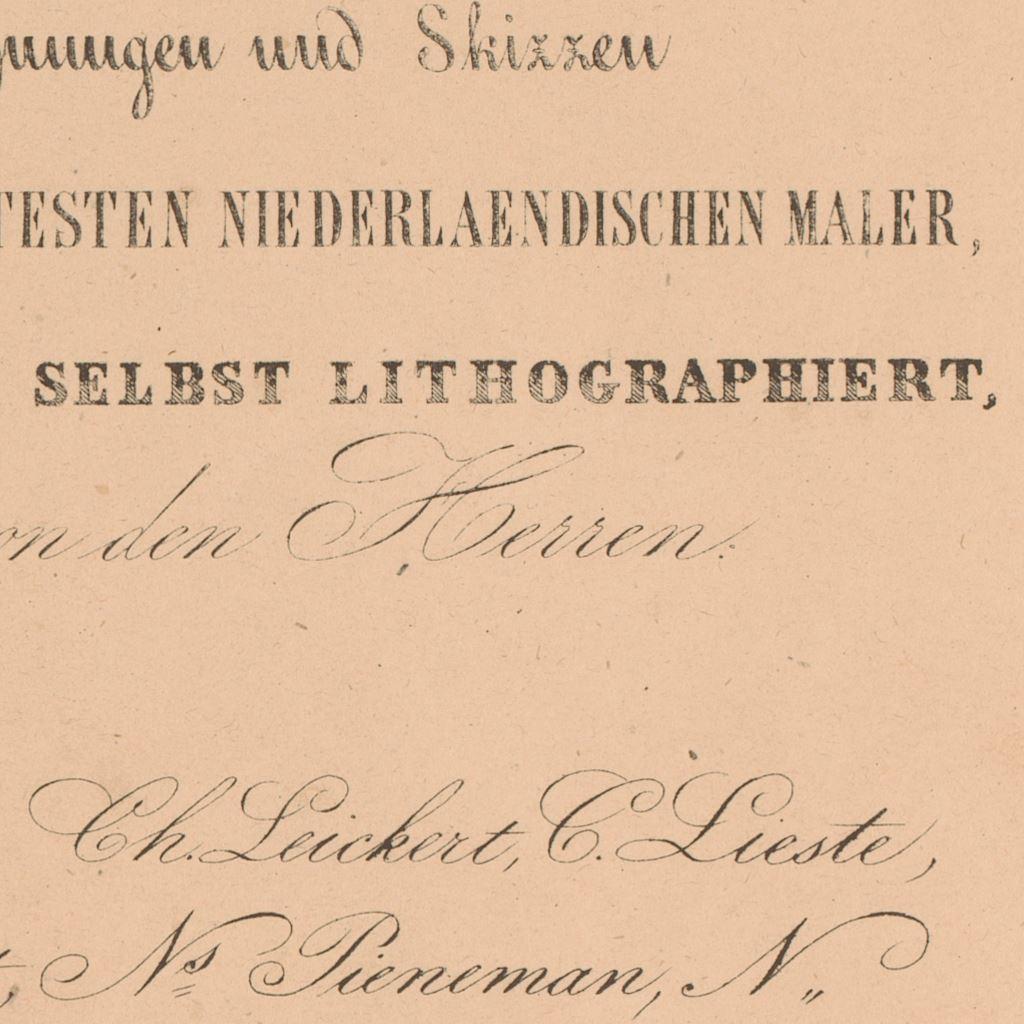 nungen und Skizzen
TESTEN NIEDERLAENDISCHEN MALER,
SELBST LITHOGRAPHIERT,
on den Herren:
Ch. Leickert, C. Lieste,
t, Ns Pieneman, N„